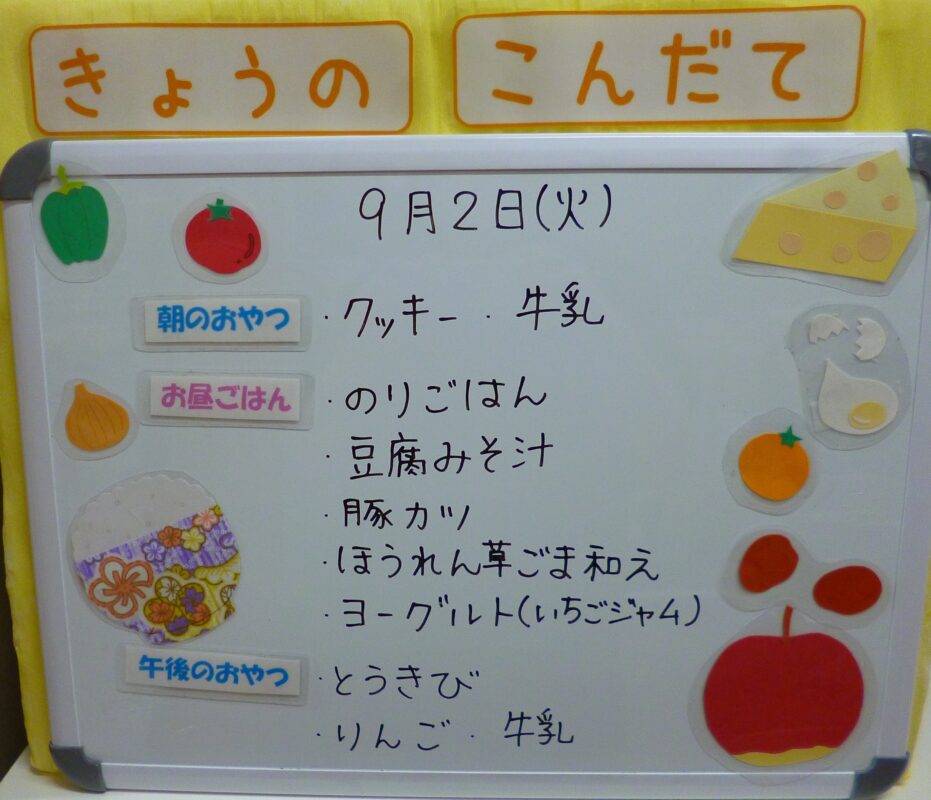 きょうの こんだて
9月2日(火)
朝のおやつ ・クッキー ・ 牛乳
お昼ごはん ・のりごはん
・豆腐みそ汁
・豚カツ
・ほうれん草ごま和え
・ヨーグルト(いちごジャム)
午後のおやつ ・とうきび
・りんご ・ 牛乳